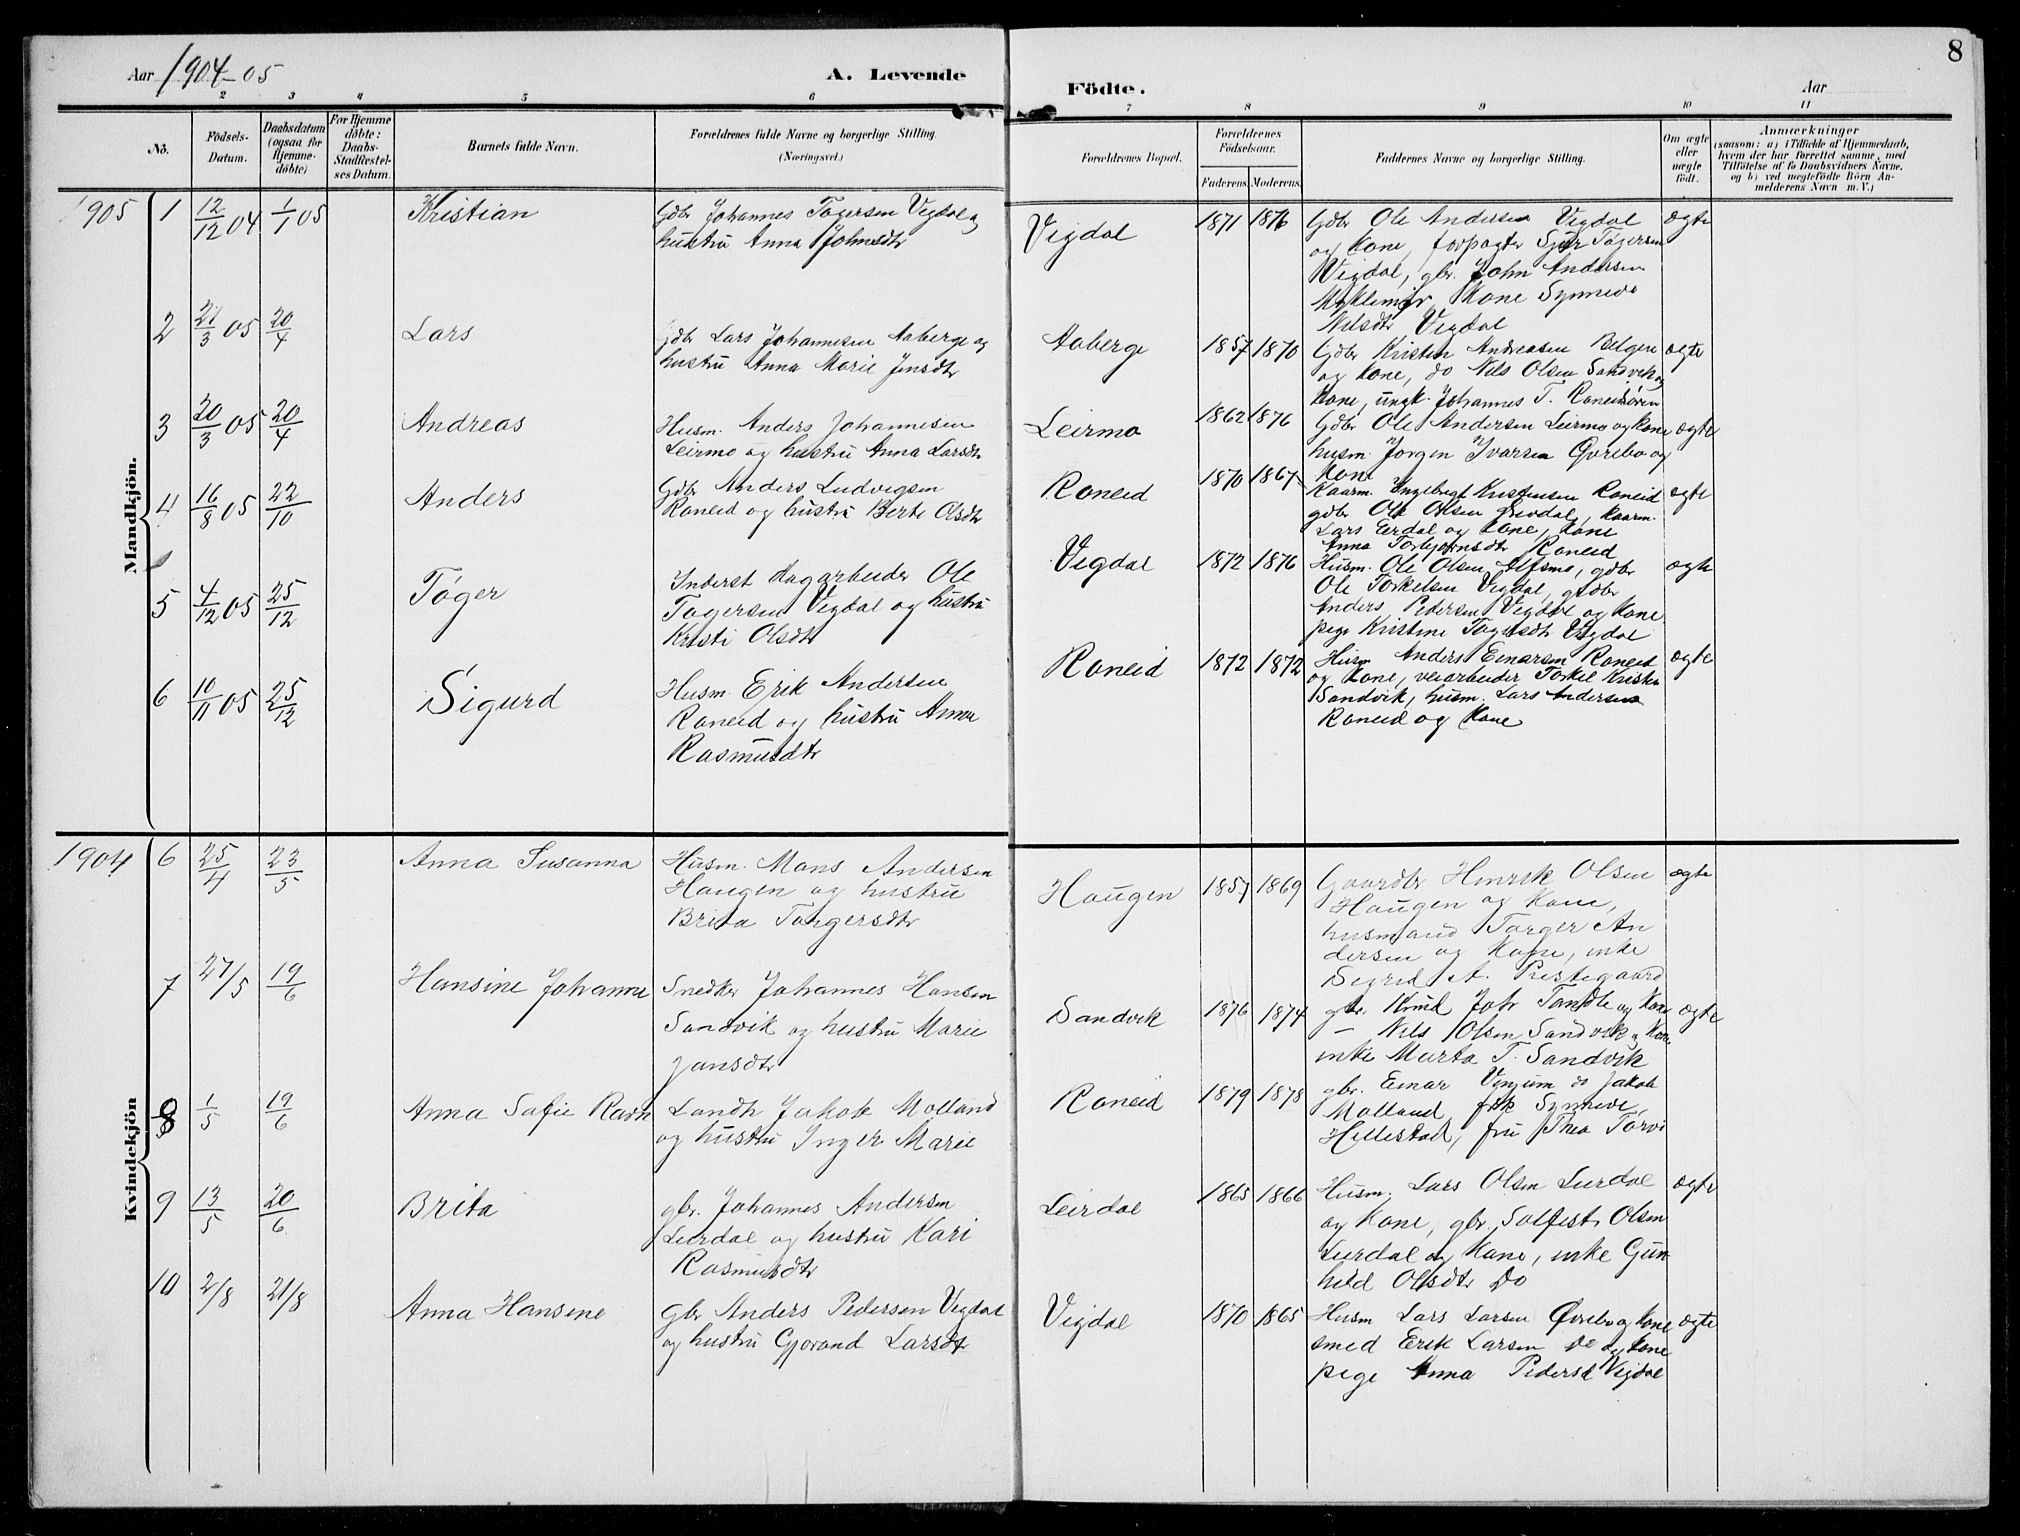 8
Aar 1904-05
A. Levende
Födte.
Aar
2 3 4 5 6
7 8 9 10 11
No.
Födsels-Datum.
Daabsdatum (ogsaa för Hjemmedöbte)
For Hjemmedöbte: Daabs-Stadfæstelses Datum.
Barnets fulde Navn.
Forældrenes fulde Navne og borgerlige Stilling.
(Næringsvei.)
Forældrenes Bopæl.
Forældrenes Födselsaar.
Faderens. Moderens.
Faddernes Navne og borgerlige Stilling.
Om ægte eller uægte födt.
Anmærkninger
(saasom: a) i Tilfælde af Hjemmedaab,
hvem der har forrettet samme, med
Tilföielse af to Daabsvidners Navne,
og b) ved uægtefödte Börn Anmelderens Navn m. V.)
Mandkjön.
1905 1 12/12 04 1/1 05 Kristian
Gdbr Johannes Tøgersen Vigdal og
hustru Anna Johnsdtr
Vigdal 1871 1876
Gdbr Ole Andersen Vigdal
og Kone, forpagter Sjur Tøgersen
Vigdal, gbr. John Andersen
Myklemyr, Kone Synneve
Nilsdtr Vigdal
ægte
2 21/3 05 20/4 Lars
Gdbr Lars Johannesen Aaberge og
hustru Anna Marie Jensdtr
Aaberge 1857 1870
Gdbr Kristen Andreasen Bolgen
og Kone, do Nils Olsen Sandvik og
Kone, ungk. Johannes T. Roneidsøren
ægte
3 20/3 05 20/4 Andreas
Husm. Anders Johannesen
Leirmo og hustru Anna Larsdtr
Leirmo 1862 1876
Gdbr Ole Andersen Leirmo og Kone
husm. Jørgen Ivarsen Øvrebo og
Kone
ægte
4 16/8 05 22/10 Anders
Gdbr Anders Ludvigsen
Roneid og hustru Berte Olsdtr
Roneid 1870 1867
Kaarm. Ingebrigt Kristensen Roneid
gdbr Ole Olsen, Kaarm.
Lars Eerdal og Kone, Kone
Anna Torbjørnsdtr Roneid
ægte
5 4/12 05 25/12 Tøger
Inderst dagarbeider Ole
Tøgersen Vigdal og hustru
Kristi Olsdtr
Vigdal 1872 1876
Husm. Ole Olsen Alfsmo, gdbr
Ole Torkelsen Vigdal, gdbr
Anders Pedersen Vigdal og Kone
pige Kristine Tøgersdtr Vigdal
ægte
6 10/11 05 25/12 Sigurd
Husm. Erik Andersen
Roneid og hustru Anna
Rasmusdtr
Roneid 1872 1872
Husm Anders Einarsen Roneid
og Kone, veiarbeider Torkel Kristen
Sandvik, husm. Lars Andersen
Roneid og Kone
ægte
Kvindekjön
1904 6 25/4 23/5 Anna Susanna
Husm. Mons Andersen
Haugen og hustru
Brita Torgersdtr
Haugen 1857 1869
Gaardbr Henrik Olsen
Haugen og Kone,
husmand Torger An
dersen og Kone, enke
Sigrid A. Prestegaard
ægte
7 27/5 19/6 Hansine Johanne
Snedker Johannes Hansen
Sandvik og hustru Marie
Jansdtr
Sandvik 1876 1874
gbr. Knud Johs Tandle og Kone
— Nils Olsen Sandvik og Kone
enke Marta T. Sandvik
ægte
8 1/5 19/6 Anna Sofie Ravn
Landh Jakob Molland
og hustru Inger Marie
Roneid 1879 1878
gbr. Einar Venjum do Jakob
Molland, frk Synneve
Hillestad, fru Thea Torvi
9 13/5 20/6 Brita
gbr. Johannes Andersen
Leirdal og hustru Kari
Rasmusdtr
Leirdal 1865 1866
Husm. Lars Olsen Leirdal
og Kone, gbr. Solfest Olsen
Leirdal og Kone, enke Gun
hild Olsdtr Do
ægte
10 2/8 21/8 Anna Hansine
Gbr Anders Pedersen Vigdal
og hustru Gjorand Larsdtr
Vigdal 1870 1865
Husm Lars Larsen Øvrebo og Kone
smed Erik Larsen Do og Kone
pige Anna Pedersd Vigdal
ægte